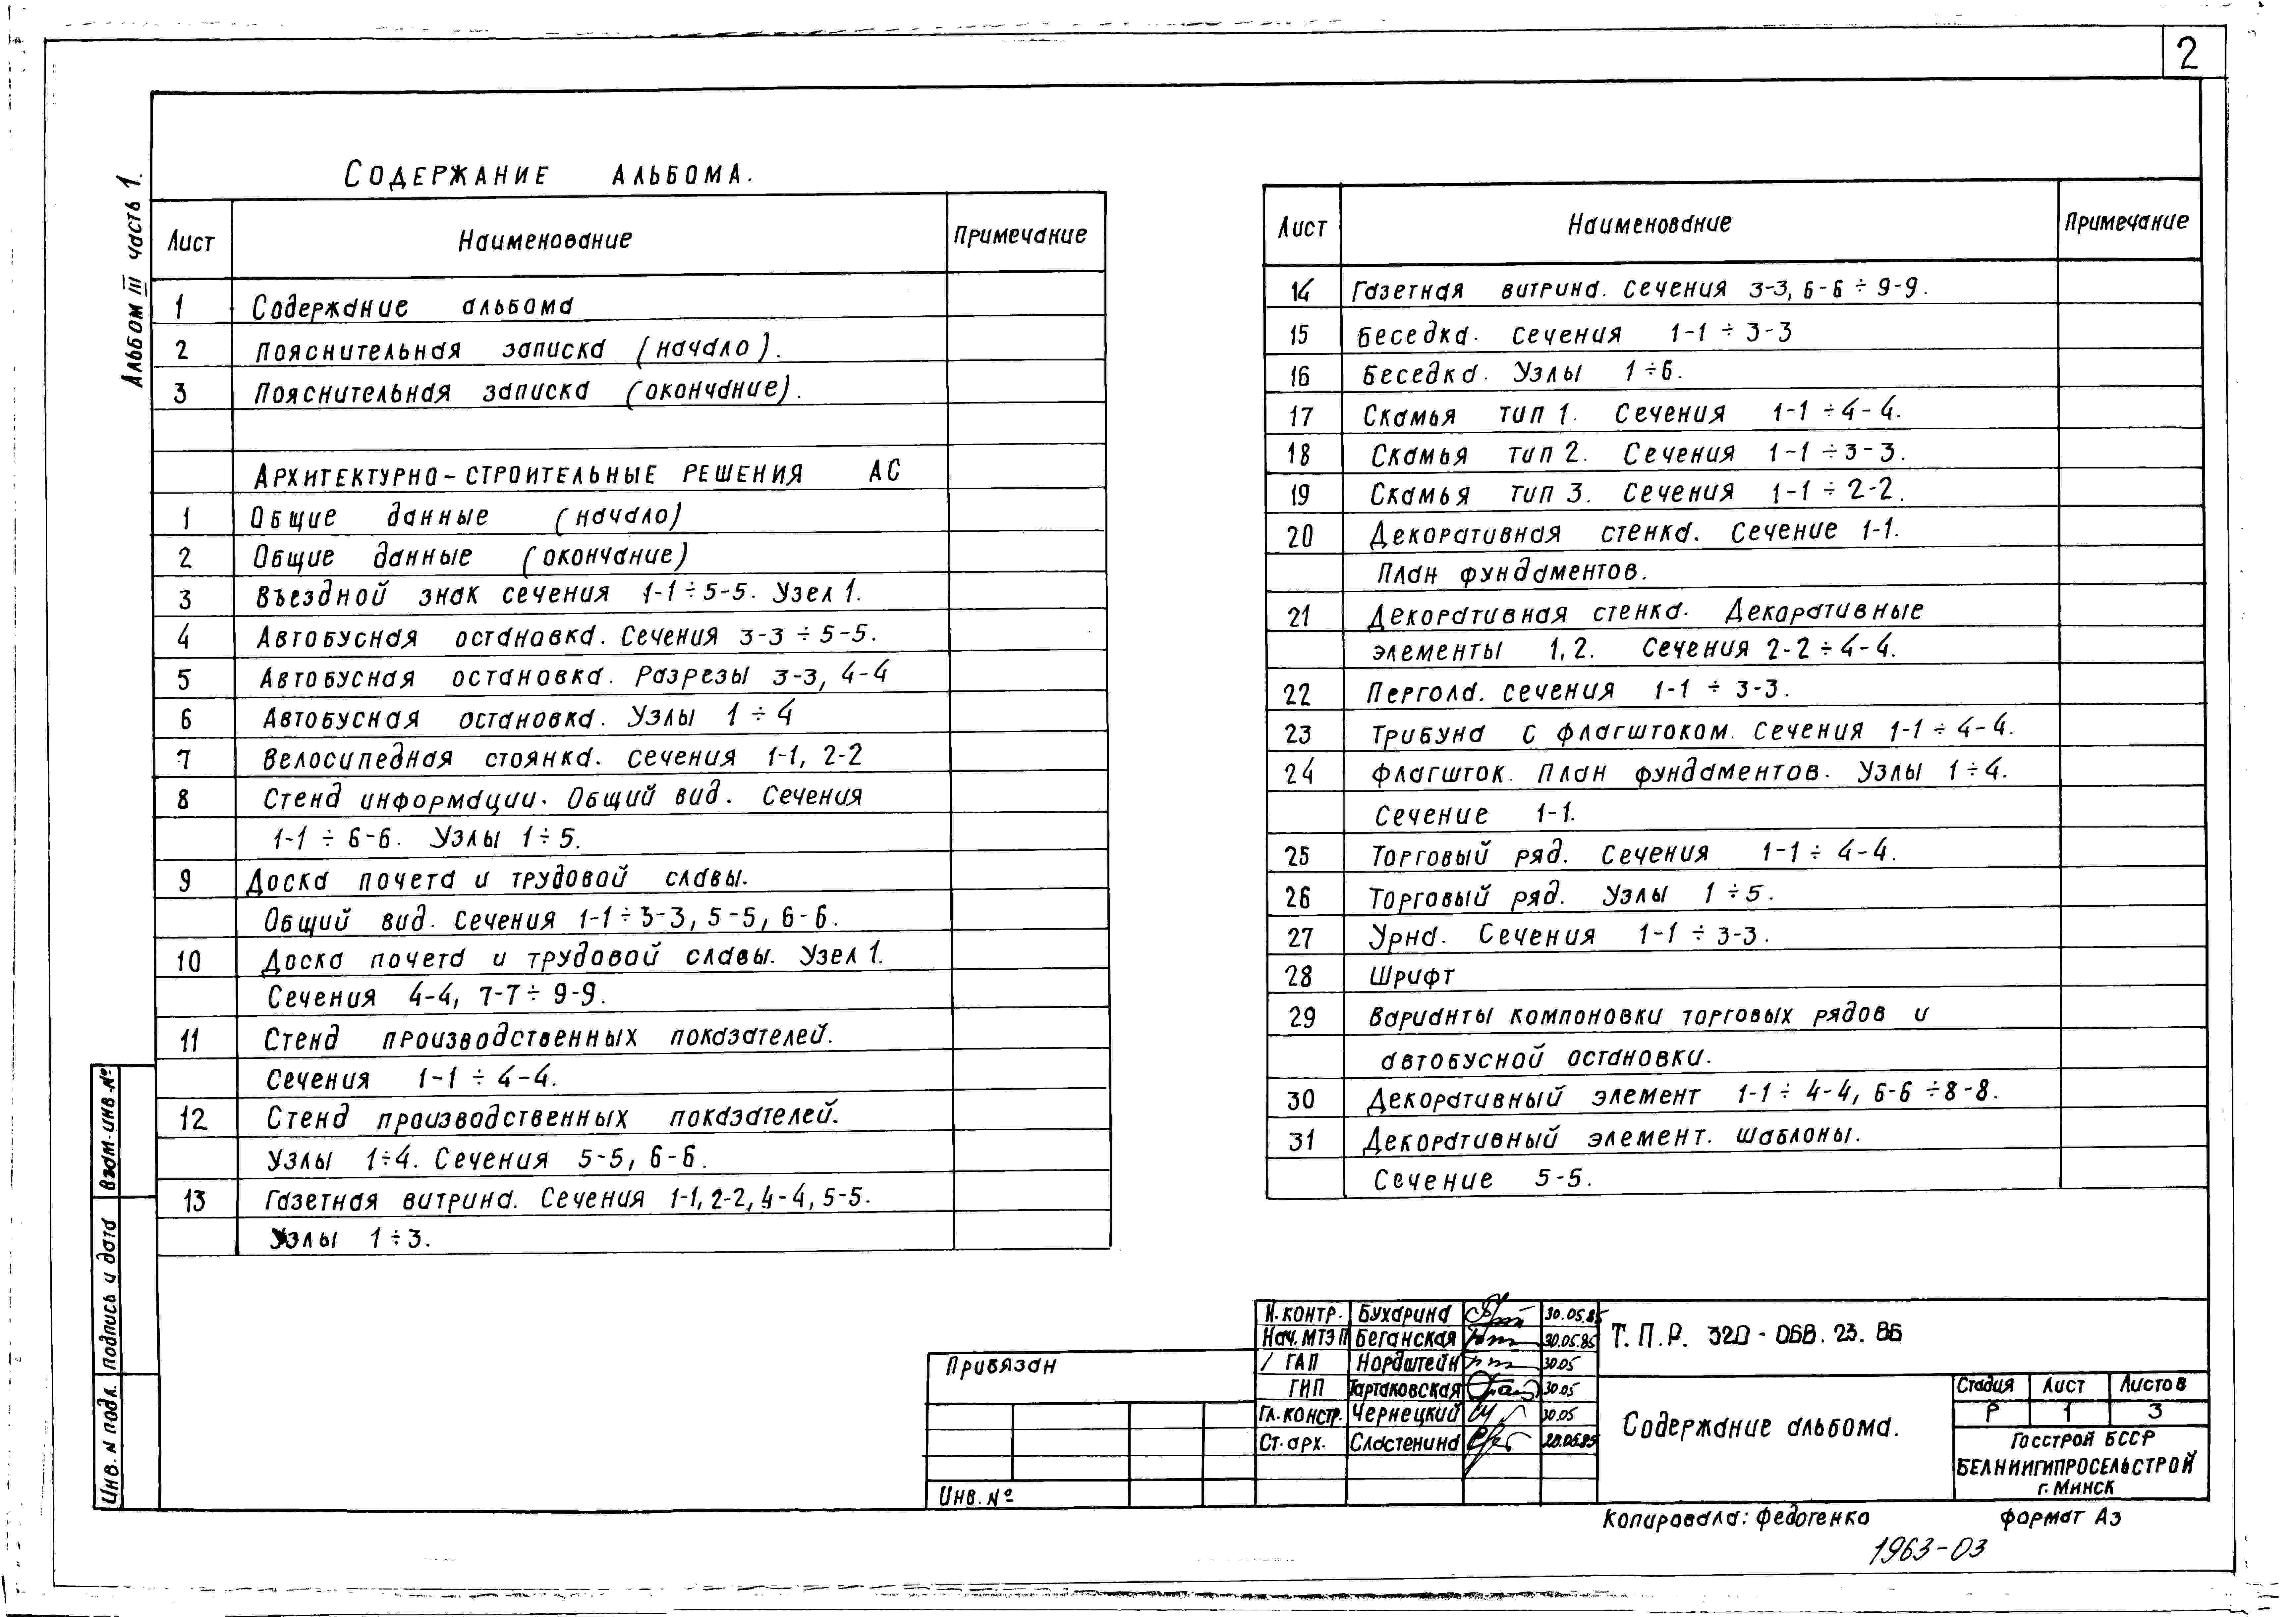 2
Альбом III часть 1.
Содержание альбома.
Лист Наименование Примечание
1 Содержание альбома
2 Пояснительная записка (начало).
3 Пояснительная записка (окончание).
Архитектурно-строительные решения АС
1 Общие данные (начало)
2 Общие данные (окончание)
3 Въездной знак сечения 1-1÷5-5. Узел 1.
4 Автобусная остановка. Сечения 3-3÷5-5.
5 Автобусная остановка. Разрезы 3-3, 4-4
6 Автобусная остановка. Узлы 1÷4
7 Велосипедная стоянка. сечения 1-1, 2-2
8 Стенд информации. Общий вид. Сечения
1-1÷6-6. Узлы 1÷5.
9 Доска почета и трудовой славы.
Общий вид. Сечения 1-1÷3-3, 5-5, 6-6.
10 Доска почета и трудовой славы. Узел 1.
Сечения 4-4, 7-7÷9-9.
11 Стенд производственных показателей.
Сечения 1-1÷4-4.
12 Стенд производственных показателей.
Узлы 1÷4. Сечения 5-5, 6-6.
13 Газетная витрина. Сечения 1-1, 2-2, 4-4, 5-5.
Узлы 1÷3.
Лист Наименование Примечание
14 Газетная витрина. Сечения 3-3, 6-6÷9-9.
15 Беседка. Сечения 1-1÷3-3
16 Беседка. Узлы 1÷6.
17 Скамья тип 1. Сечения 1-1÷4-4.
18 Скамья тип 2. Сечения 1-1÷3-3.
19 Скамья тип 3. Сечения 1-1÷2-2.
20 Декоративная стенка. Сечение 1-1.
План фундаментов.
21 Декоративная стенка. Декоративные
элементы 1, 2. Сечения 2-2÷4-4.
22 Пергола. сечения 1-1÷3-3.
23 Трибуна с флагштоком. Сечения 1-1÷4-4.
24 Флагшток. План фундаментов. Узлы 1÷4.
Сечение 1-1.
25 Торговый ряд. Сечения 1-1÷4-4.
26 Торговый ряд. Узлы 1÷5.
27 Урна. Сечения 1-1÷3-3.
28 Шрифт
29 Варианты компоновки торговых рядов и
автобусной остановки.
30 Декоративный элемент 1-1÷4-4, 6-6÷8-8.
31 Декоративный элемент. Шаблоны.
Сечение 5-5.
Взам. инв. №
Подпись и дата
Инв. N подл.
Привязан
Инв. №
Н. контр. Бухарина 30.05.85
Нач. МТЭП Беганская 30.05.85
ГАП Нордштейн 30.05
ГИП Тартаковская 30.05
Гл. констр. Чернецкий 30.05
Ст. арх. Сластенина 20.05.85
Т.П.Р. 320-06В.23.86
Содержание альбома.
Стадия Лист Листов
Р 1 3
Госстрой БССР
БЕЛНИИГИПРОСЕЛЬСТРОЙ
г. Минск
Копировала: Федотенко Формат А3
1963-03